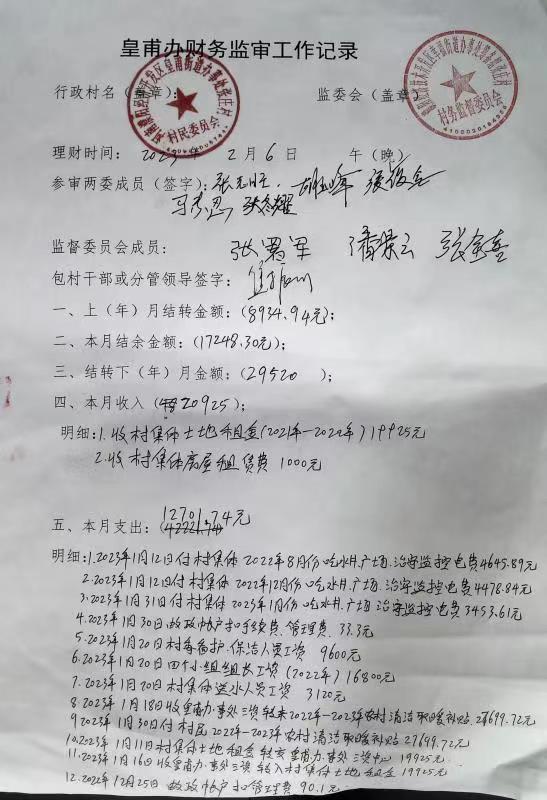 皇甫办财务监审工作记录
行政村名（盖章）： 监委会（盖章）
村民委员会
村务监督委员会
理财时间： 2023年 2月6日 午（晚）
参审两委成员（签字）：
监督委员会成员：
包村干部或分管领导签字：
一、上（年）月结转金额：（8934.94元）；
二、本月结余金额：（17248.30元）；
三、结转下（年）月金额：（29520 ）；
四、本月收入（20925）；
明细：1.收村集体土地租金（2021年-2022年）19925元
2.收村集体房屋租赁费 1000元
12701.74元
五、本月支出：
明细：1.2023年1月12日付村集体2022年8月份吃水井.广场.治安监控电费4645.89元
2.2023年1月12日付村集体2022年12月份吃水井.广场.治安监控电费4478.84元
3.2023年1月31日付村集体2023年1月份吃水井.广场.治安监控电费3453.61元
4.2023年1月30日 帐户扣手续费.管理费.33.3元
5.2023年1月20日村 保洁人员工资 9600元
6.2023年1月20日四个小组组长工资（2022年）16800元
7.2023年1月20日村集体送水人员工资 3120元
8.2023年1月18日收皇甫办事处三资转来2022年-2023年农村清洁取暖补贴.27699.72元
9.2023年1月30日付村民2022年-2023年农村清洁取暖补贴 27699.72元
10.2023年1月11日村集体土地租金转交皇甫办事处三资中心 19925元
11.2023年1月16日收皇甫办事处三资转入村集体土地租金 19925元
12.2022年12月25日 帐户扣管理费 90.1元